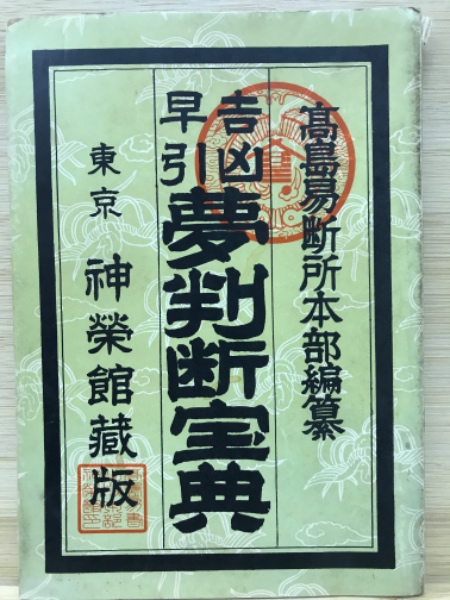 髙島易断所本部編纂
吉凶
早引
夢判断宝典
東京
神榮館藏版